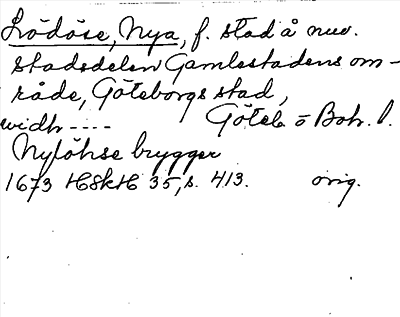 Lödöse, Nya, f. stad å nuv.
stadsdelen Gamlestadens om-
råde, Göteborgs stad,
widh ---- Göteb o Boh. l.
Nylöhse brygger
1673 HSkH 35, s. 413. orig.